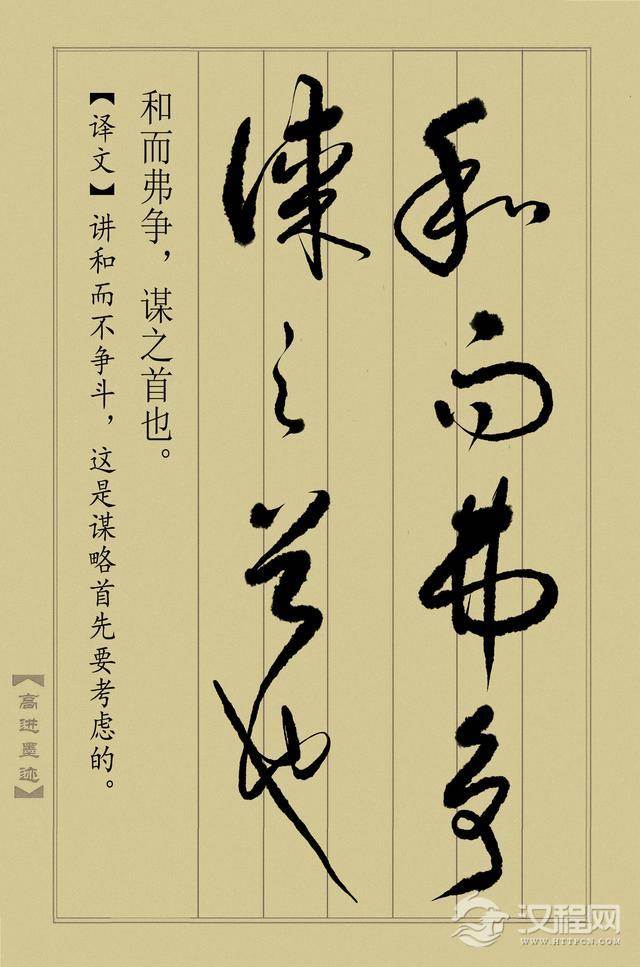 和而弗争
谋之首也
和而弗争，谋之首也。
【译文】讲和而不争斗，这是谋略首先要考虑的。
【高进墨迹】
汉程网
WWW.HTTPCN.COM